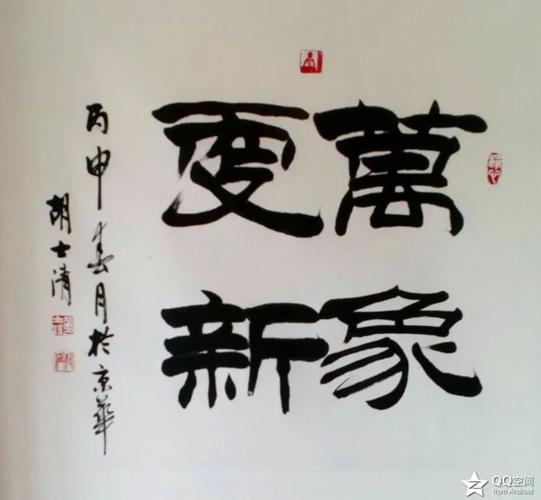 萬象
更新
丙申春月於京華
胡士清
QQ空间
from Android